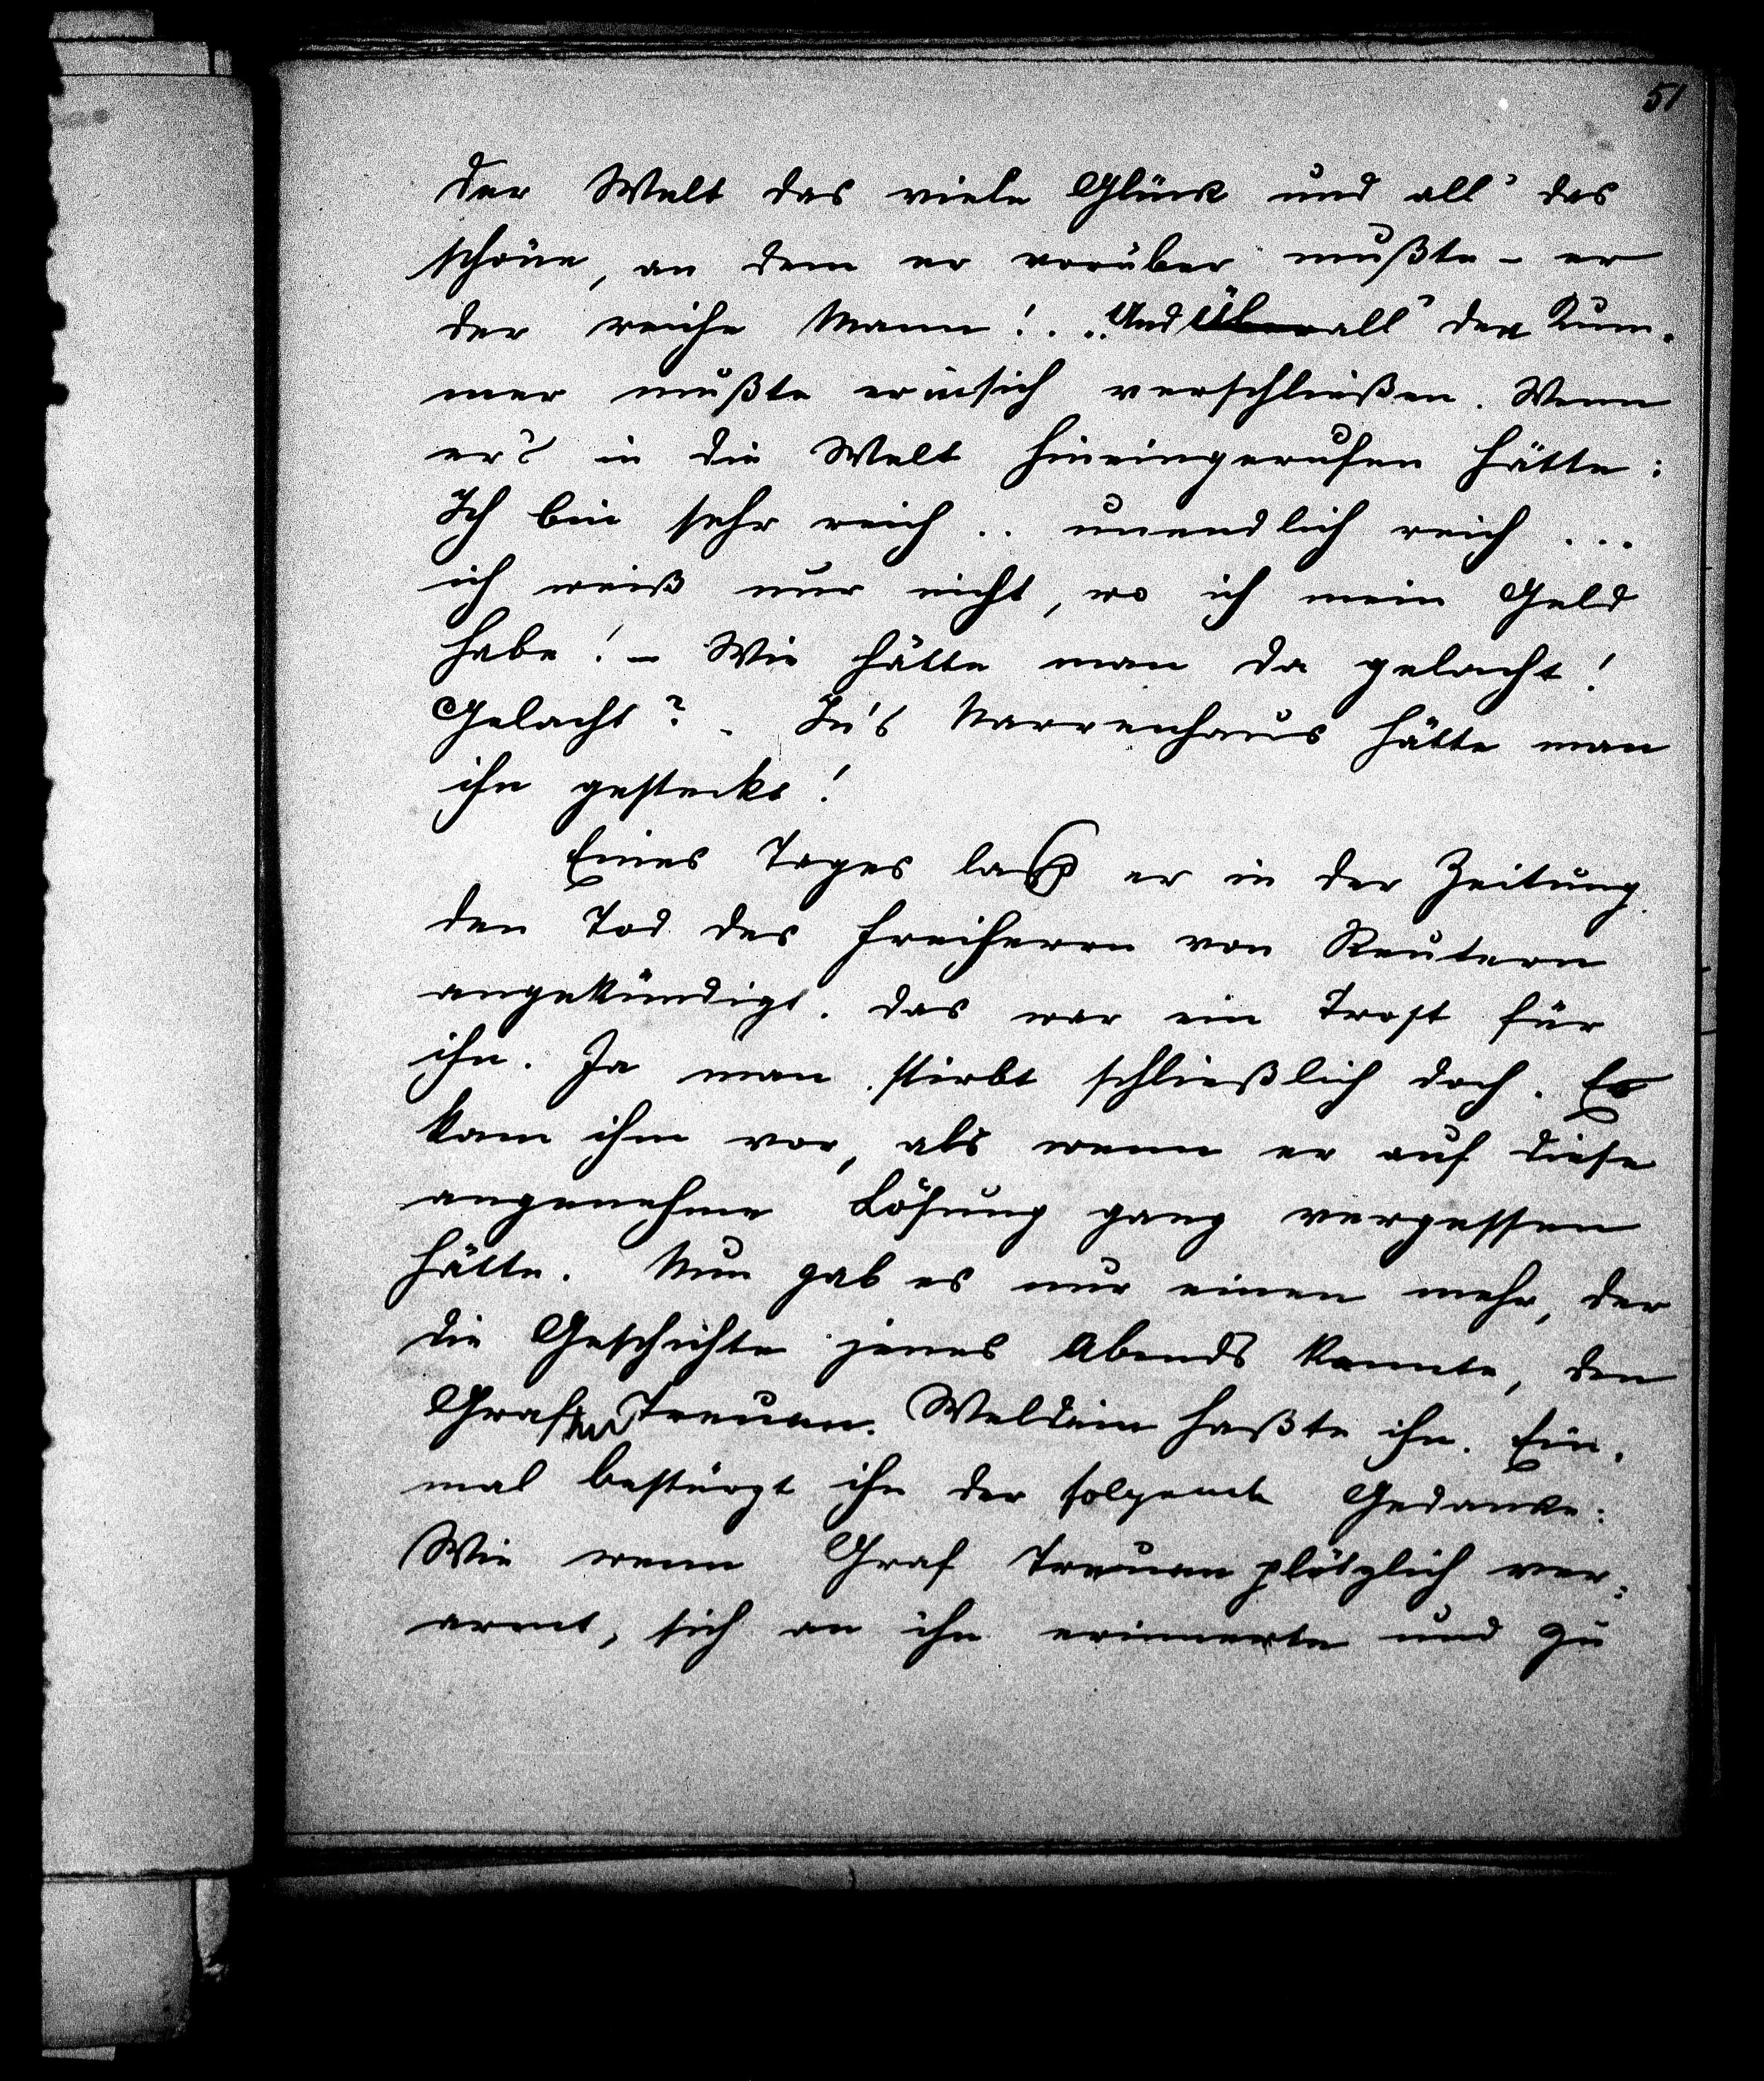 51
der Welt das viele Glück und all' das
schöne, an dem er vorüber mußte - er
der reiche Mann! . .. Und Überall' den Kum-
mer mußte er in sich verschließen. Wenn
er's in die Welt hineingerufen hätte:
Ich bin sehr reich .. unendlich reich ...
ich weiß nur nicht, wo ich mein Geld
habe! - Wie hätte man da gelacht!
Gelacht? - In's Narrenhaus hätte man
ihn gesteckt!
Eines Tages las er in der Zeitung
den Tod des Freiherrn von Reutern
angekündigt. Das war ein Trost für
ihn. Ja man stirbt schließlich doch. Es
kam ihm vor, als wenn er auf diese
angenehme Lösung ganz vergessen
hätte. Nun gab es nur einen mehr, der
die Geschichte jenes Abends kannte, den
Grafen Treuan. Weldein haßte ihn. Ein-
mal bestürzt ihn der folgende Gedanke:
Wie wenn Graf Treuan plötzlich ver-
armt, sich an ihn erinnerte und zu